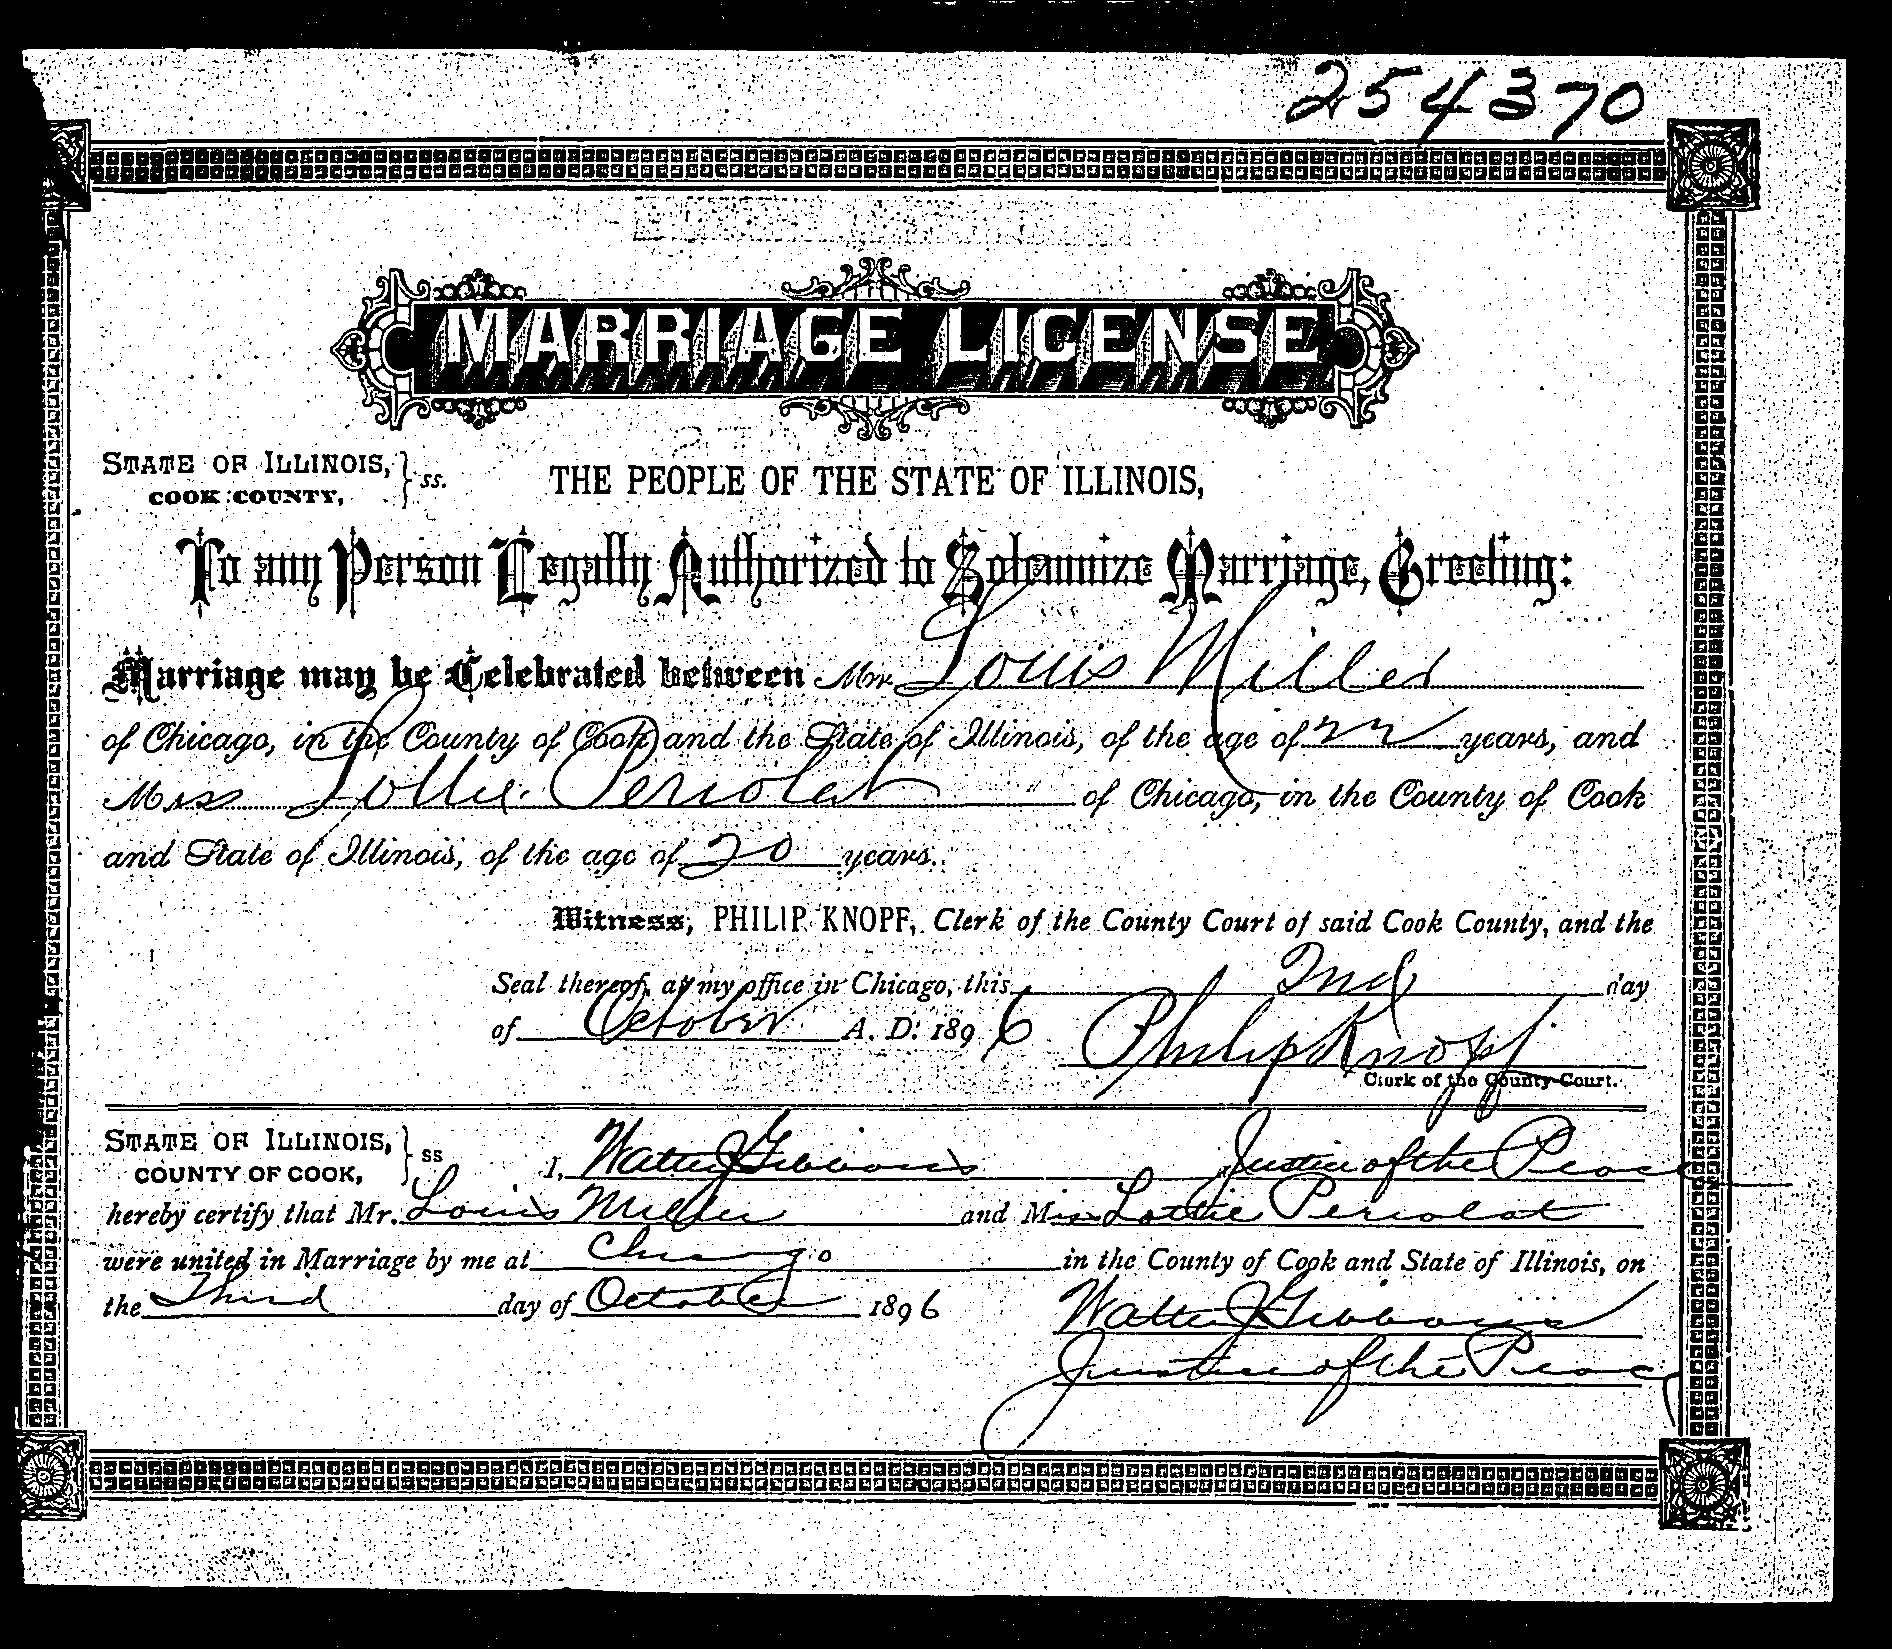 254370
MARRIAGE LICENSE
STATE OF ILLINOIS, } ss.
COOK COUNTY,
THE PEOPLE OF THE STATE OF ILLINOIS,
To any Person Legally Authorized to Solemnize Marriage, Greeting:
Marriage may be Celebrated between Mr. Louis Miller
of Chicago, in the County of Cook and the State of Illinois, of the age of 22 years, and
Miss Lottie Periolat of Chicago, in the County of Cook
and State of Illinois, of the age of 20 years.
Witness, PHILIP KNOPF, Clerk of the County Court of said Cook County, and the
Seal thereof, at my office in Chicago, this 2nd day
of October A. D. 1896 Philip Knopf
Clerk of the County Court.
STATE OF ILLINOIS, } ss
COUNTY OF COOK,
I, Walter J Gibbons Justice of the Peace
hereby certify that Mr. Louis Miller and Miss Lottie Periolat
were united in Marriage by me at Chicago in the County of Cook and State of Illinois, on
the Third day of October 1896 Walter J Gibbons
Justice of the Peace